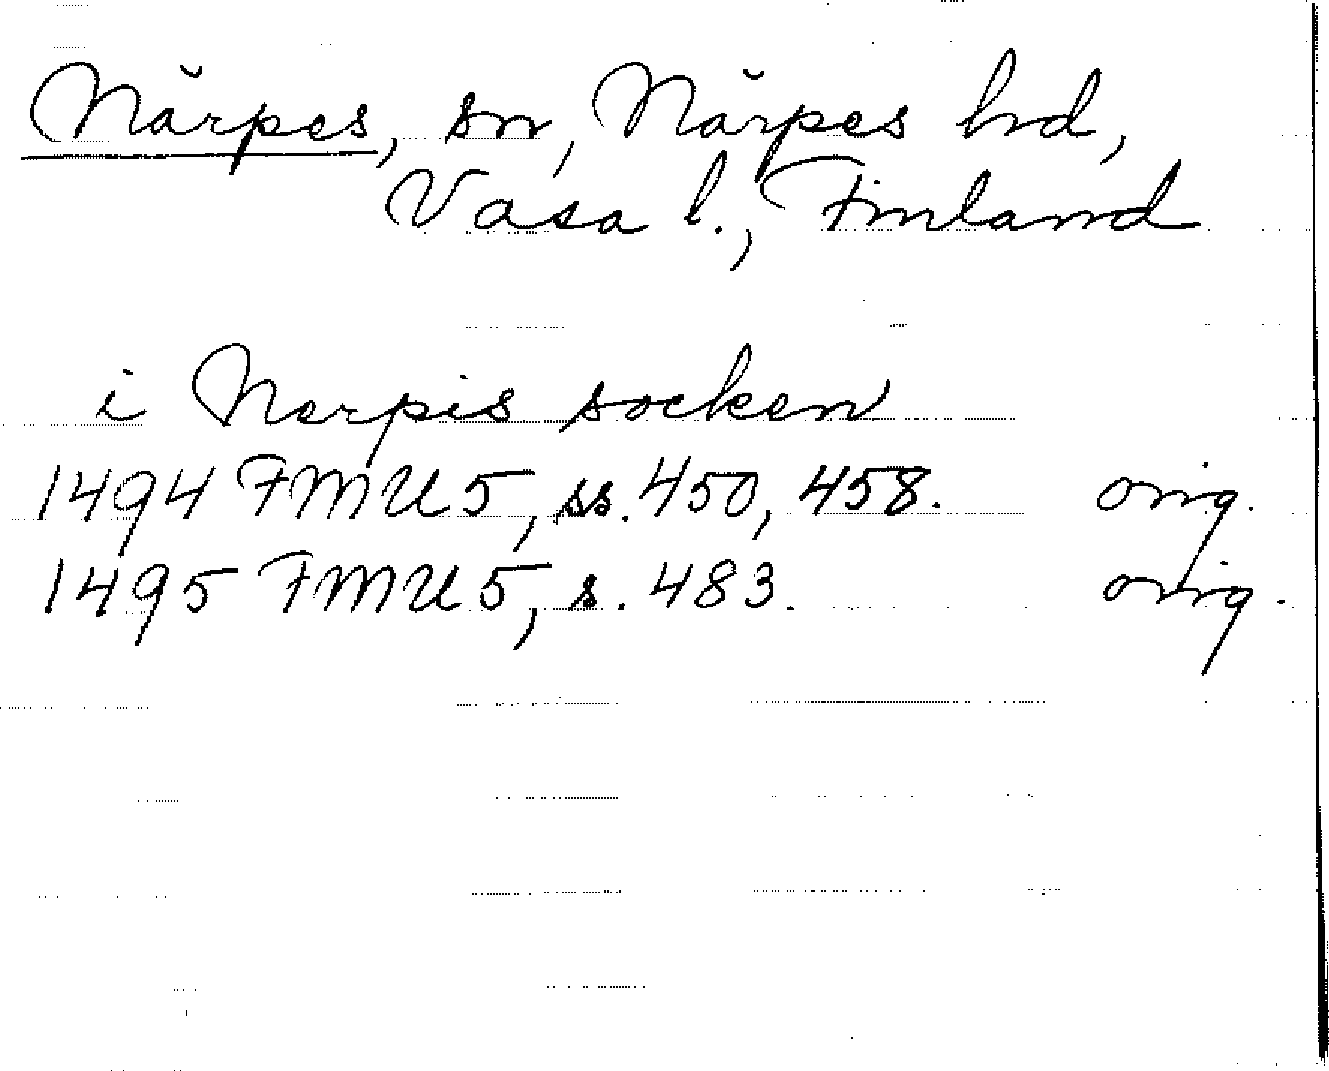 Närpes, sn, Närpes hd,
Vasa l., Finland
i Nerpis socken
1494 FMU 5, ss. 450, 458. orig.
1495 FMU 5, s. 483. orig.